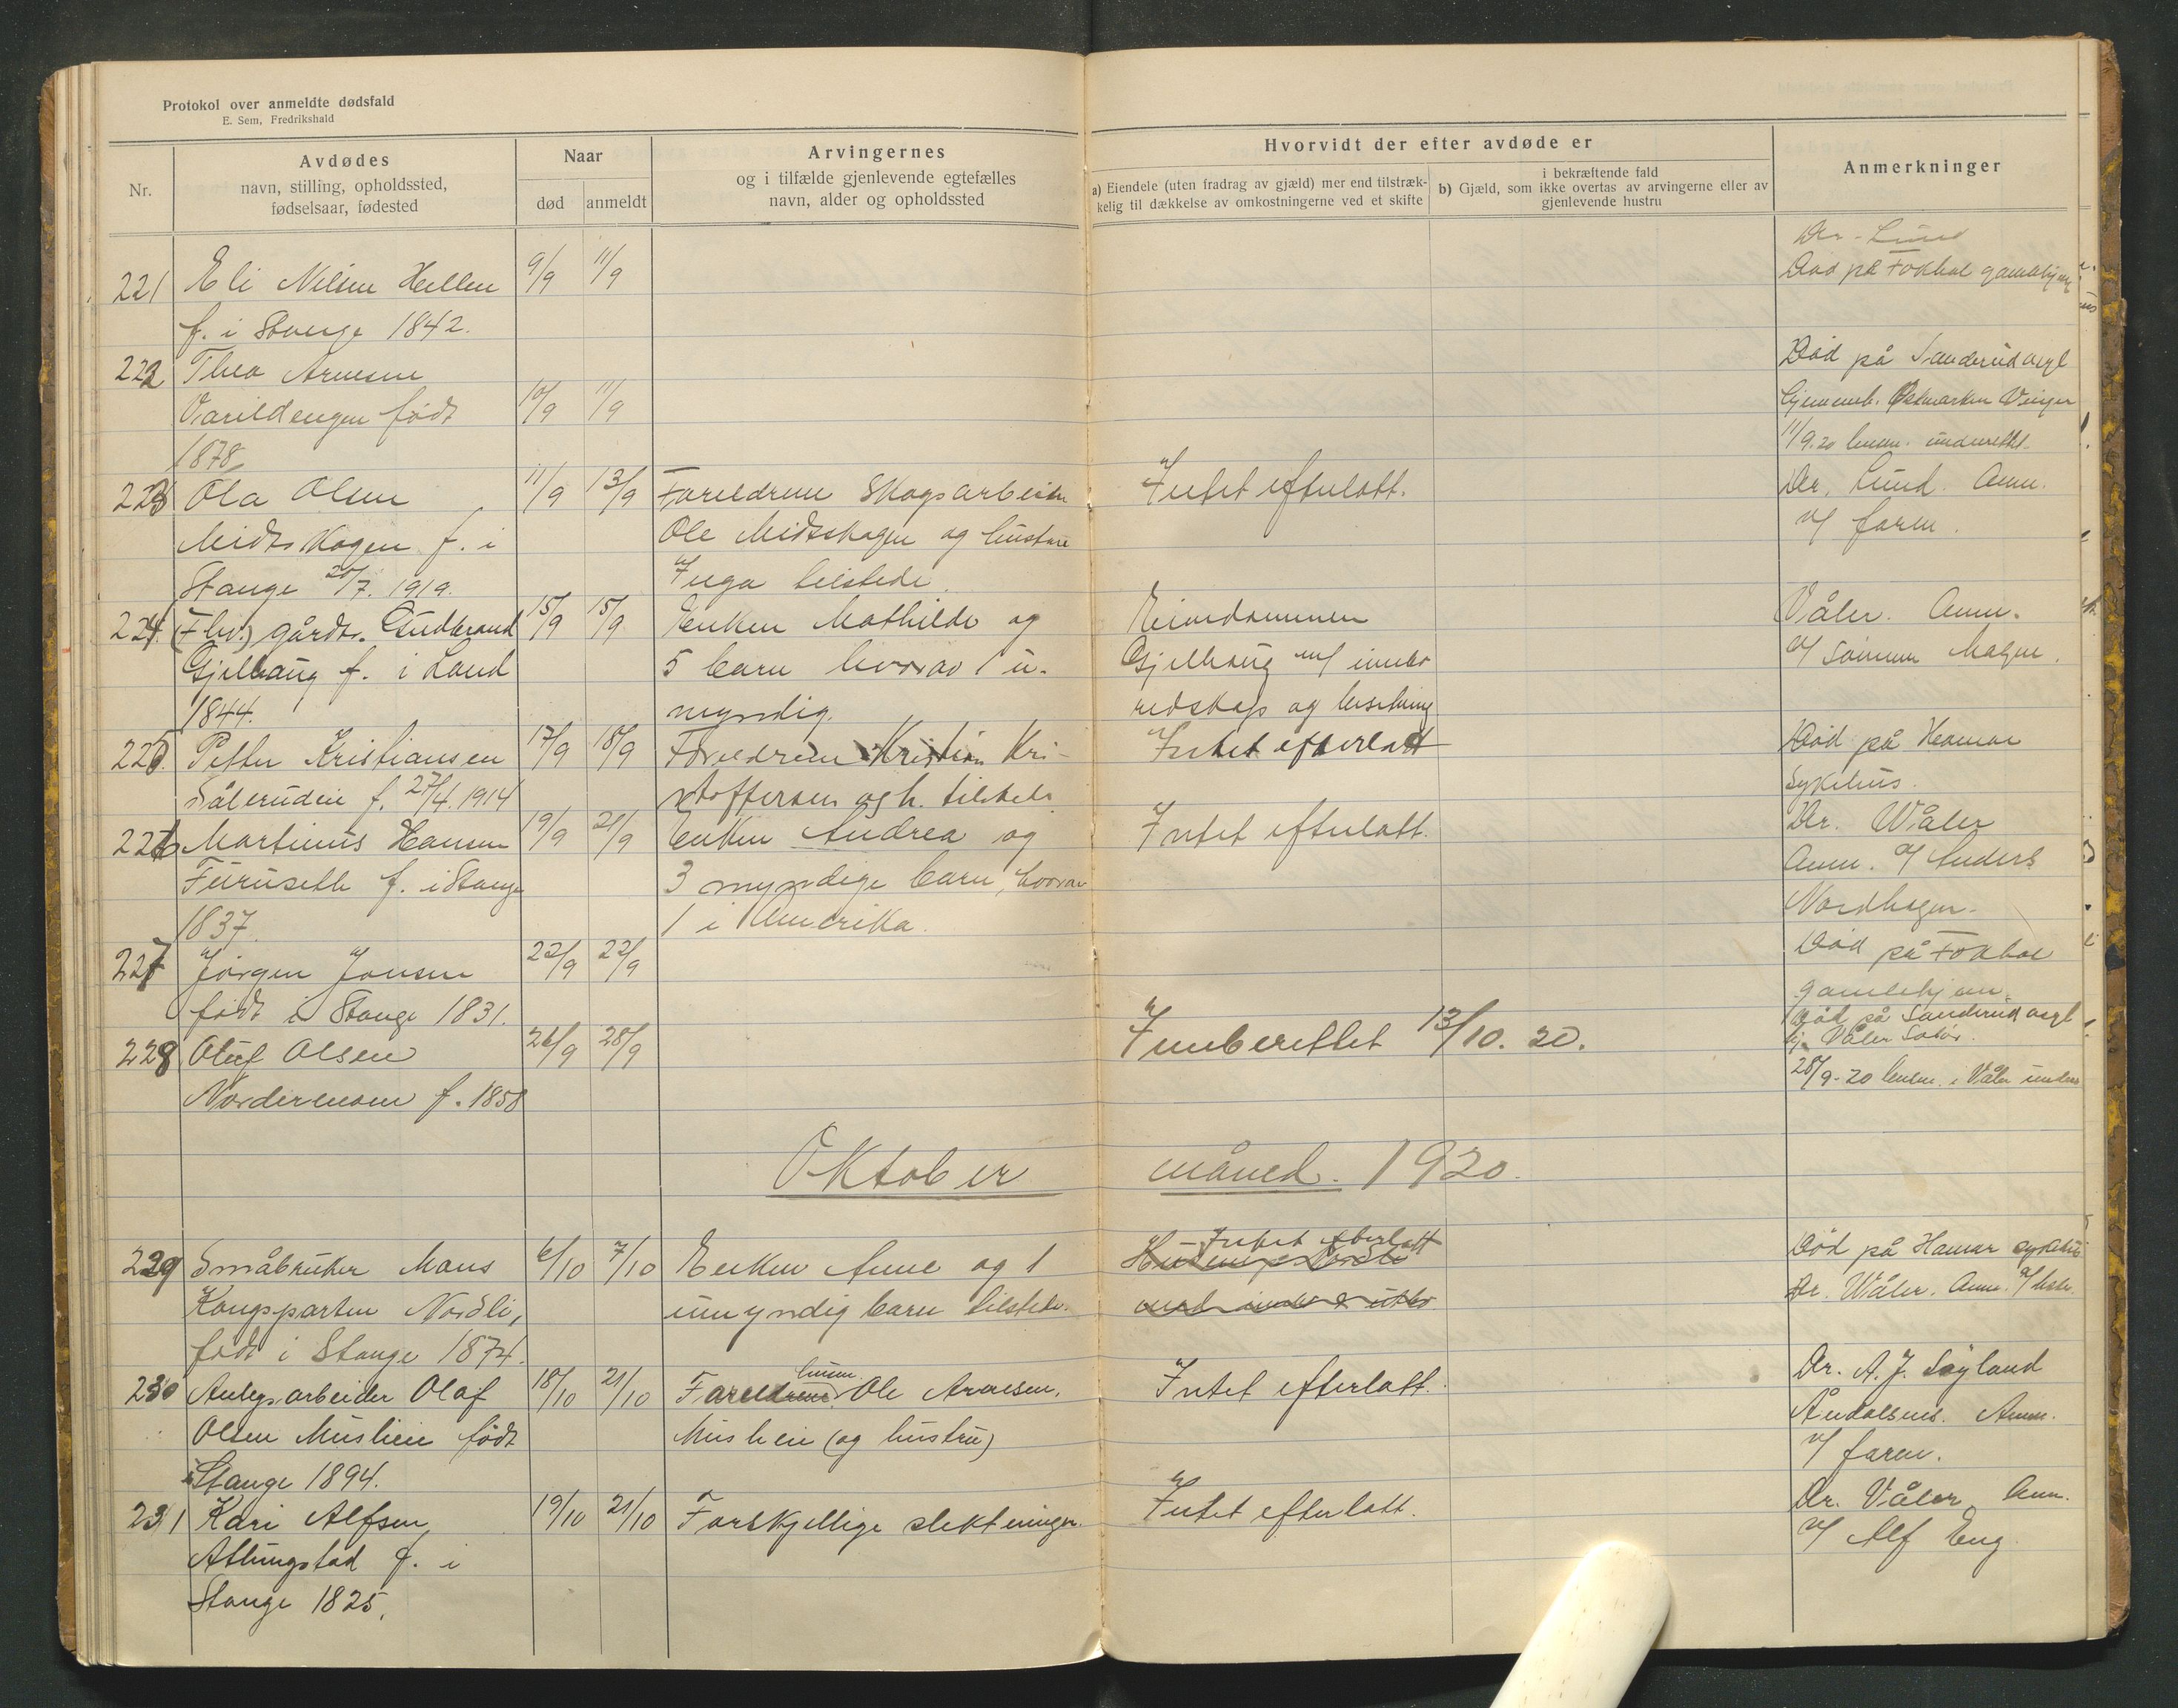 Protokol over anmeldte dødsfald
E. Sem, Fredrikshald
Nr.
Avdødes
navn, stilling, opholdssted,
fødselsaar, fødested
Naar
død
anmeldt
Arvingernes
og i tilfælde gjenlevende egtefælles
navn, alder og opholdssted
Hvorvidt der efter avdøde er
a) Eiendele (uten fradrag av gjæld) mer end tilstræk-
kelig til dækkelse av omkostningerne ved et skifte
i bekræftende fald
b) Gjæld, som ikke overtas av arvingerne eller av
gjenlevende hustru
Anmerkninger
221 Eli Nilsen Hellen 9/9 11/9
f. i Stange 1842.
Dr. Lund
Død på Fokhol gamlehjem
222 Thea Arnesen
Varildengen født 10/9 11/9
1878
Død på Sanderud asyl
Hjemmeh. Østmarken Vinger
11/9.20 lensm. underrettet.
223 Ola Olsen 11/9 13/9 Foreldrene Skogsarbeider Intet efterlatt. Dr. Lund. Anm.
Midtskogen f. i Ole Midtskogen og hustru v/ faren.
Stange 20/7. 1919. Inga tilstede.
224. (Fhv.) gårdbr. Gudbrand 15/9 15/9 Enken Mathilde og Eiendommen Våler. Anm.
Gjelhaug f. i Land 5 barn hvorav 1 u- Gjelhaug m/ innbo v/ sønnen Magne.
1844. myndig. redskap og besetning
225. Petter Kristiansen 17/9 18/9 Foreldrene Kristian Kri- Intet efterlatt Død på Hamar
Såleruden f. 27/4. 1914 stoffersen og h. tilstede. sykehus.
226 Martinus Hansen 19/9 21/9 Enken Andrea og Intet efterlatt. Dr. Wåler
Furuseth f. i Stange 3 myndige barn, hvorav Anm. v/ Anders
1837. 1 i Amerika. Nordhagen.
227 Jørgen Jonsen 22/9 22/9 Død på Fokhol
født i Stange 1831. gamlehjem.
228 Oluf Olsen 26/9 28/9 Innberettet 13/10. 20. Død på Sanderud asyl
Norderenom f. 1858 hj. Våler Solør.
28/9-20 lensm. i Våler underr.
Oktober måned. 1920.
229 Småbruker Mons 6/10 7/10 Enken Anne og 1 Intet efterlatt Død på Hamar sykehus
Kongsparten Nordli, umyndig barn tilstede. Dr. Wåler. Anm.
født i Stange 1874.
230 Anlegsarbeider Olaf 18/10 21/10 Foreldrene Ole Arnesen. Intet efterlatt. Dr. A. J. Søyland
Olsen Muslien født Muslien (og hustru) Åndalsnes. Anm.
i Stange 1894. v/ faren.
231 Kari Alfsen 19/10 21/10 Forskjellige slektninger. Intet efterlatt. Dr. Våler. Anm.
Atlungstad f. i v/ Alf Eng.
Stange 1825.